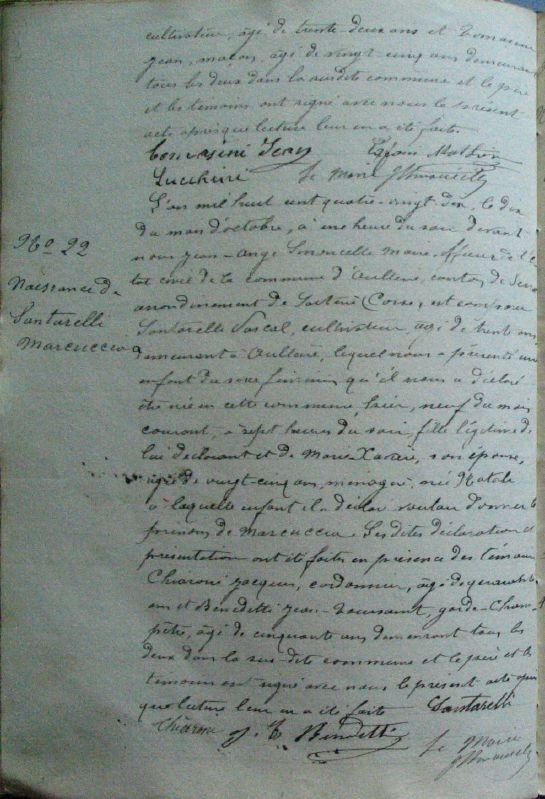 cultivateur, âgé de trente-deux ans et Tomasini
Jean, maçon, âgé de vingt-cinq ans demeurant
tous les deux dans la susdite commune et le père
et les témoins ont signé avec nous le présent
acte après que lecture leur en a été faite.
Lucchini le Maire
L'an mil huit cent quatre-vingt-dix, le dix
du mois d'octobre, à une heure du soir devant
nous Jean-Ange Simoncelli Maire officier de l'é
tat civil de la commune d'Aullène, canton de Serra
arrondissement de Sartène (Corse), est comparu
Santarelli Pascal, cultivateur, âgé de trente ans
demeurant à Aullène, lequel nous a présenté un
enfant du sexe féminin qu'il nous a déclaré
être né en cette commune, hier, neuf du mois
courant, à sept heures du soir, fille légitime de
lui déclarant et de Marie Xavière, son épouse,
âgée de vingt-cinq ans, ménagère, née Natali
à laquelle enfant il a déclaré vouloir donner le
prénom de Marcuccia. Les dites déclaration et
présentation ont été faites en présence des témoins
Chiaroni Jacques, cordonnier, âgé de quarante
ans et Benedetti Jean-Toussaint, garde-Cham-
pêtre, âgé de cinquante ans demeurant tous les
deux dans la sus-dite commune et le père et les
témoins ont signé avec nous le présent acte après
que lecture leur en a été faite Santarelli
Chiaroni J. T. Benedetti le Maire
No 22
Naissance de
Santarelli
Marcuccia